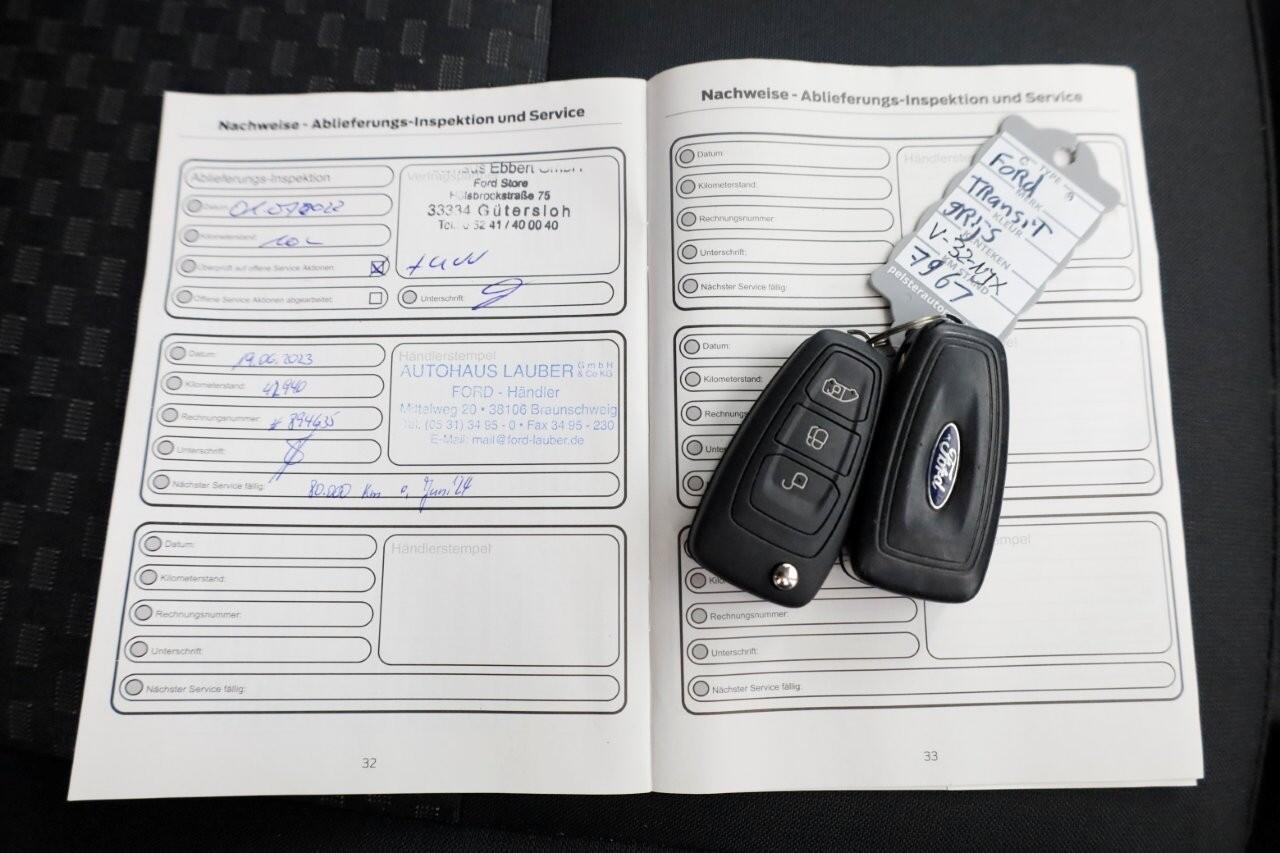 Nachweise - Ablieferungs-Inspektion und Service
Ablieferungs-Inspektion
Datum:
Kilometerstand:
Überprüft auf offene Service Aktionen:
Offene Service Aktionen abgearbeitet:
Ebbert GmbH
Ford Store
Hülsbrockstraße 75
33334 Gütersloh
Tel.: 0 52 41 / 40 00 40
Unterschrift:
Datum: 19.06.2023
Kilometerstand:
Rechnungsnummer: # 894635
Unterschrift:
Nächster Service fällig: 80.000 Km o. Juni '24
Händlerstempel
AUTOHAUS LAUBER GmbH & Co KG
FORD - Händler
Mittelweg 20 • 38106 Braunschweig
Tel. (05 31) 34 95 - 0 • Fax 34 95 - 230
E-Mail: mail@ford-lauber.de
Datum:
Kilometerstand:
Rechnungsnummer:
Unterschrift:
Nächster Service fällig:
Händlerstempel
32
Nachweise - Ablieferungs-Inspektion und Service
Datum:
Kilometerstand:
Rechnungsnummer:
Unterschrift:
Nächster Service fällig:
TYPE
Ford
MERK
Transit
KLEUR
grijs
KENTEKEN
V-32-NTX
KM STAND
7967
Datum:
Kilometerstand:
Ford
Rechnungsnummer:
Unterschrift:
Nächster Service fällig:
33